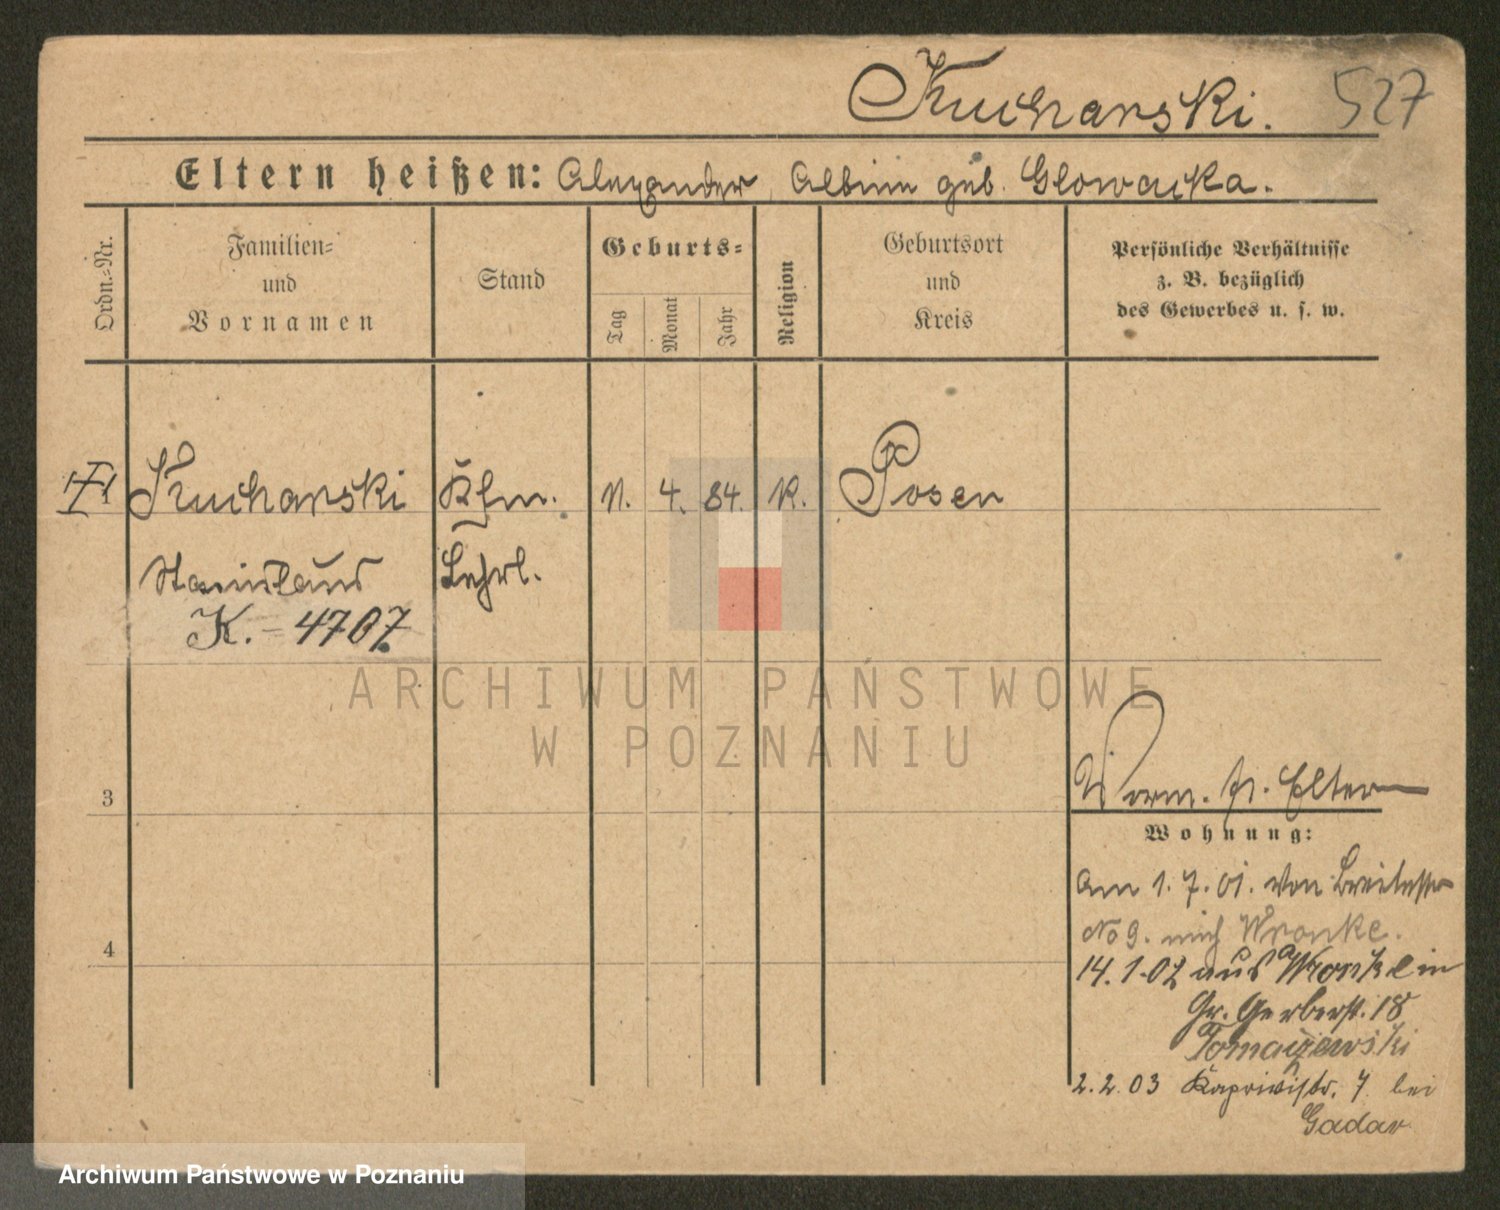 Kucharski. 527
Eltern heißen: Alexander, Albine geb. Glowacka.
Ordn.-Nr.
Familien-
und
Vornamen
Stand
Geburts-
Tag
Monat
Jahr
Religion
Geburtsort
und
Kreis
Persönliche Verhältnisse
z. B. bezüglich
des Gewerbes u. s. w.
Kucharski Kfm. 11. 4. 84. K. Posen
Stanislaus Lehrl.
K. - 4707
ARCHIWUM PAŃSTWOWE
W POZNANIU
Vorm. s. Eltern
3
Wohnung:
Am 1. 7. 01. von Breitestr
No 9. nach Wronke.
4
14. 1. 02 aus Wronke in
Gr. Gerberst. 18
Tomaszewski
2. 2. 03 Kaprivistr. 7 bei
Gadar
Archiwum Państwowe w Poznaniu